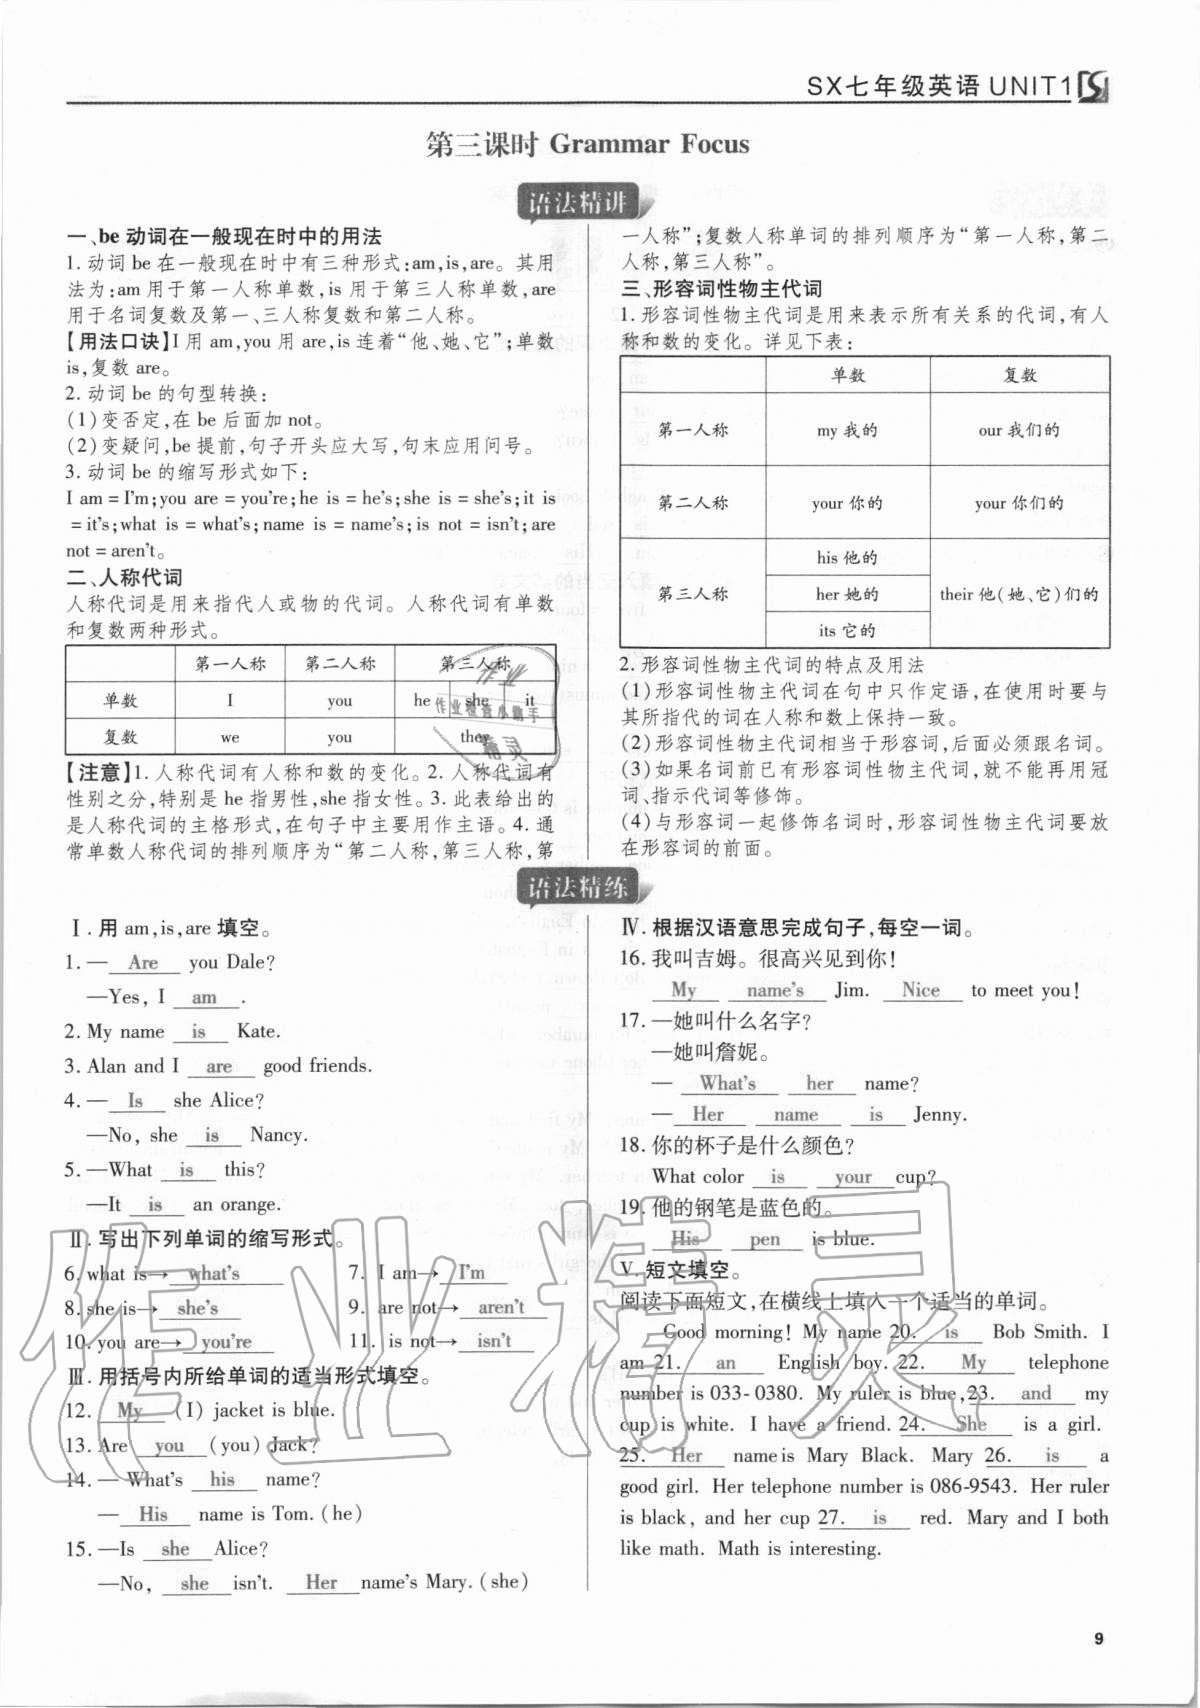 SX七年级英语 UNIT1
第三课时 Grammar Focus
语法精讲
一、be 动词在一般现在时中的用法
1. 动词 be 在一般现在时中有三种形式:am,is,are。其用
法为:am 用于第一人称单数,is 用于第三人称单数,are
用于名词复数及第一、三人称复数和第二人称。
【用法口诀】I 用 am,you 用 are,is 连着“他、她、它”;单数
is,复数 are。
2. 动词 be 的句型转换:
(1)变否定,在 be 后面加 not。
(2)变疑问,be 提前,句子开头应大写,句末应用问号。
3. 动词 be 的缩写形式如下:
I am = I'm;you are = you're;he is = he's;she is = she's;it is
= it's;what is = what's;name is = name's;is not = isn't;are
not = aren't。
二、人称代词
人称代词是用来指代人或物的代词。人称代词有单数
和复数两种形式。
第一人称 第二人称 第三人称
单数 I you he she it
复数 we you they
【注意】1. 人称代词有人称和数的变化。2. 人称代词有
性别之分,特别是 he 指男性,she 指女性。3. 此表给出的
是人称代词的主格形式,在句子中主要用作主语。4. 通
常单数人称代词的排列顺序为“第二人称,第三人称,第
一人称”;复数人称单词的排列顺序为“第一人称,第二
人称,第三人称”。
三、形容词性物主代词
1. 形容词性物主代词是用来表示所有关系的代词,有人
称和数的变化。详见下表:
单数 复数
第一人称 my 我的 our 我们的
第二人称 your 你的 your 你们的
第三人称 his 他的 her 她的 its 它的 their 他(她、它)们的
2. 形容词性物主代词的特点及用法
(1)形容词性物主代词在句中只作定语,在使用时要与
其所指代的词在人称和数上保持一致。
(2)形容词性物主代词相当于形容词,后面必须跟名词。
(3)如果名词前已有形容词性物主代词,就不能再用冠
词、指示代词等修饰。
(4)与形容词一起修饰名词时,形容词性物主代词要放
在形容词的前面。
作业
作业检查小助手
精灵
语法精练
Ⅰ. 用 am,is,are 填空。
1. — Are you Dale?
—Yes, I am .
2. My name is Kate.
3. Alan and I are good friends.
4. — Is she Alice?
—No, she is Nancy.
5. —What is this?
—It is an orange.
Ⅱ. 写出下列单词的缩写形式。
6. what is→ what's 7. I am→ I'm
8. she is→ she's 9. are not→ aren't
10. you are→ you're 11. is not→ isn't
Ⅲ. 用括号内所给单词的适当形式填空。
12. My (I) jacket is blue.
13. Are you (you) Jack?
14. — What's his name?
— His name is Tom. (he)
15. —Is she Alice?
—No, she isn't. Her name's Mary. (she)
Ⅳ. 根据汉语意思完成句子,每空一词。
16. 我叫吉姆。很高兴见到你!
My name's Jim. Nice to meet you!
17. —她叫什么名字?
—她叫詹妮。
— What's her name?
— Her name is Jenny.
18. 你的杯子是什么颜色?
What color is your cup?
19. 他的钢笔是蓝色的。
His pen is blue.
Ⅴ. 短文填空。
阅读下面短文,在横线上填入一个适当的单词。
Good morning! My name 20. is Bob Smith. I
am 21. an English boy. 22. My telephone
number is 033-0380. My ruler is blue,23. and my
cup is white. I have a friend. 24. She is a girl.
25. Her name is Mary Black. Mary 26. is a
good girl. Her telephone number is 086-9543. Her ruler
is black, and her cup 27. is red. Mary and I both
like math. Math is interesting.
作业精灵
9